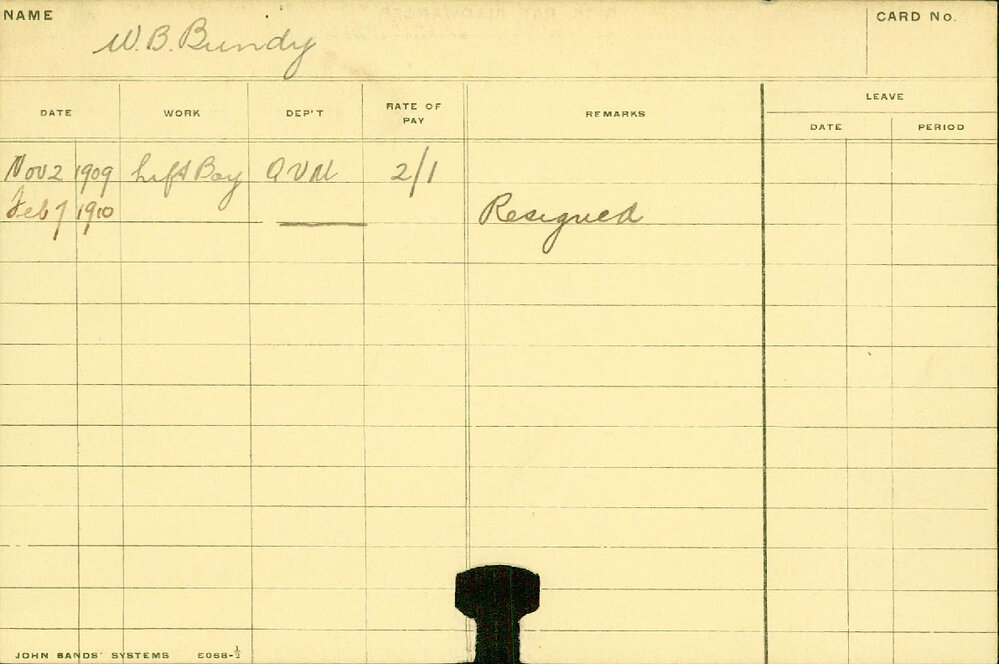 NAME
W. B. Bundy
CARD No.
DATE WORK DEP'T RATE OF PAY REMARKS LEAVE
DATE PERIOD
Nov 2 1909 Lift Boy Q V M 2/1
Feb 7 1910 Resigned
JOHN SANDS' SYSTEMS 6068-½